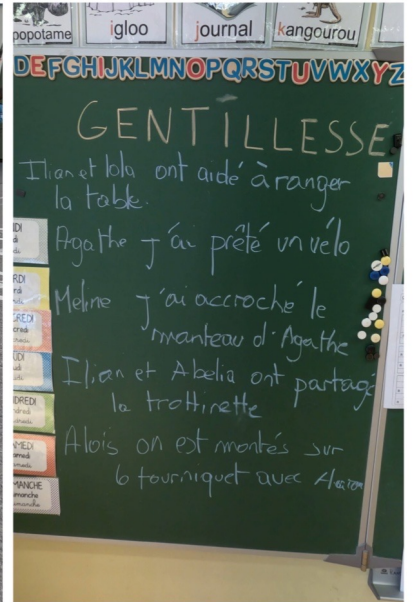 popotame
igloo
journal
kangourou
DEFGHIJKLMNOPQRSTUVWXYZ
GENTILLESSE
Ilian et lola ont aidé à ranger
la table.
Agathe j'ai prêté un vélo
Meline j'ai accroché le
manteau d'Agathe
Ilian et Abelia ont partagé
la trottinette
Aloïs on est montés sur
le tourniquet avec
DI
RDI
rdi
CREDI
credi
UDI
udi
DREDI
dredi
MEDI
amedi
MANCHE
imanche